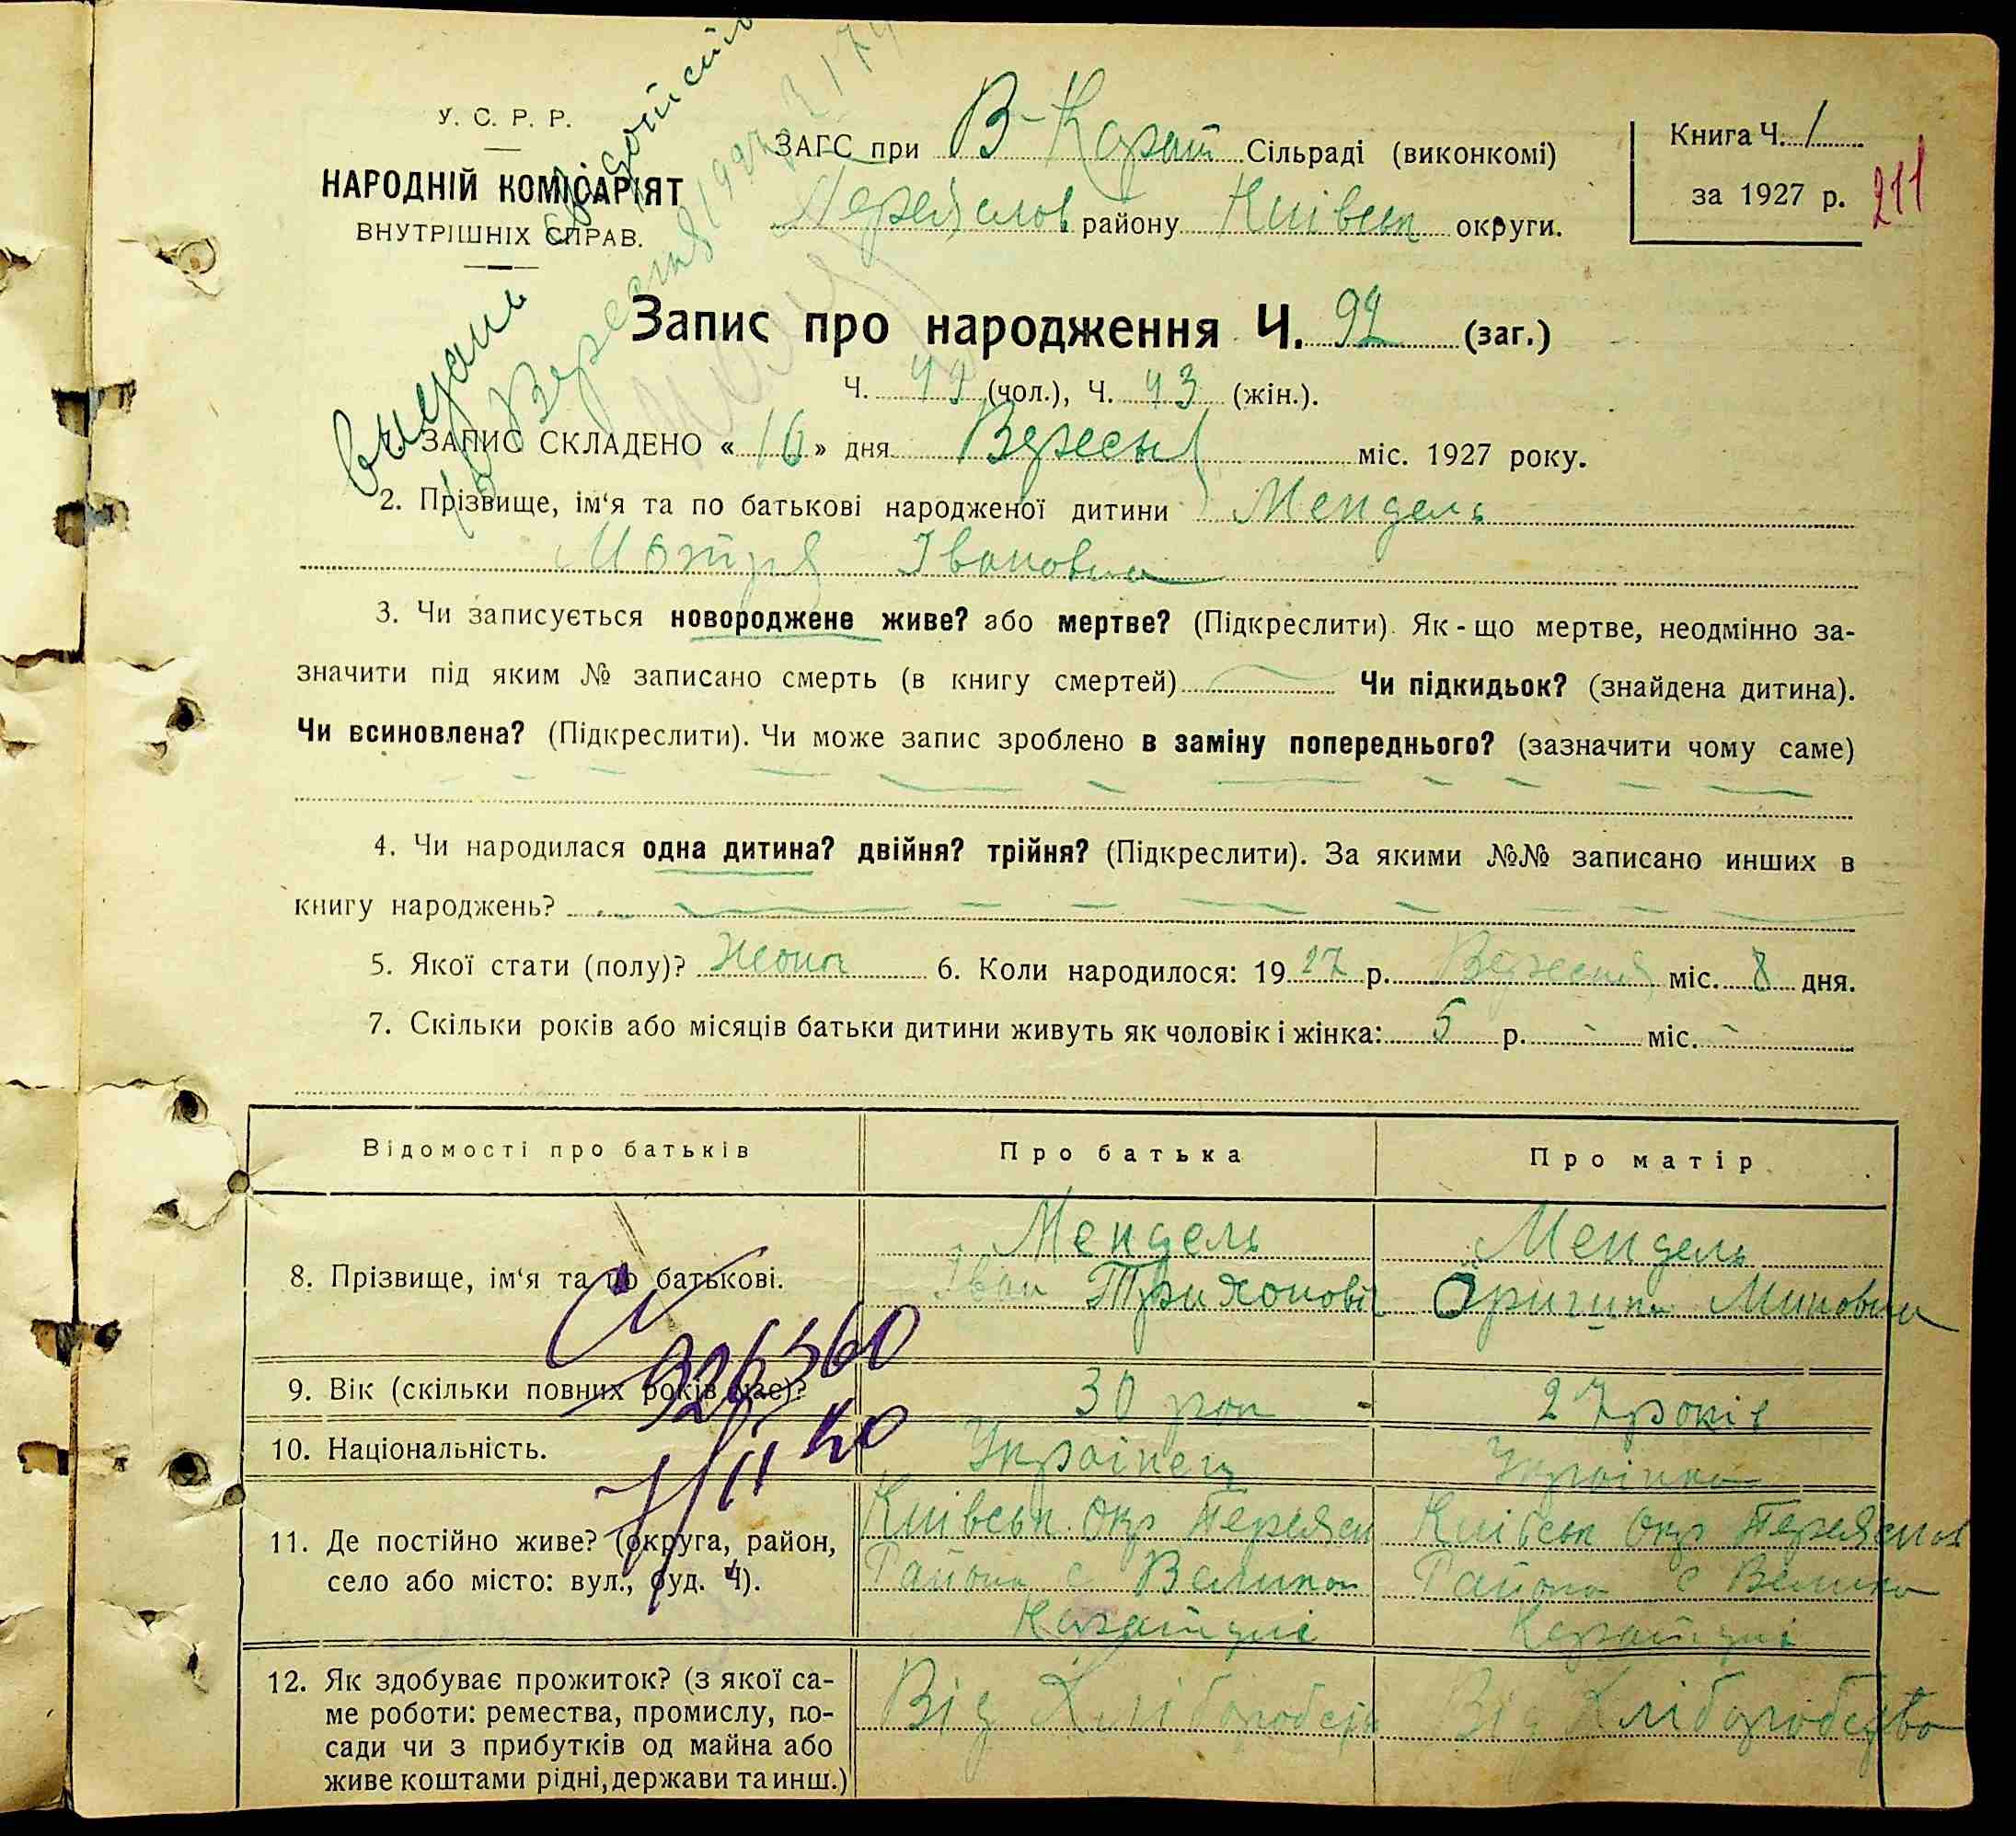 У. С. Р. Р.
НАРОДНІЙ КОМІСАРІЯТ
ВНУТРІШНІХ СПРАВ.
ЗАГС при В-Карат Сільраді (виконкомі)
Переяслов району Київськ округи.
Книга Ч. 1
за 1927 р.
211
Запис про народження Ч. 92 (заг.)
Ч. (чол.), Ч. 43 (жін.).
ЗАПИС СКЛАДЕНО « 16 » дня Вересня міс. 1927 року.
2. Прізвище, ім'я та по батькові народженої дитини Мендель
Мотря Івановна
3. Чи записується новороджене живе? або мертве? (Підкреслити). Як-що мертве, неодмінно за-
значити під яким № записано смерть (в книгу смертей) Чи підкидьок? (знайдена дитина).
Чи всиновлена? (Підкреслити). Чи може запис зроблено в заміну попереднього? (зазначити чому саме)
4. Чи народилася одна дитина? двійня? трійня? (Підкреслити). За якими №№ записано инших в
книгу народжень?
5. Якої стати (полу)? Жоноч 6. Коли народилося: 1927 р. Вересня міс. 8 дня.
7. Скільки років або місяців батьки дитини живуть як чоловік і жінка: 5 р. - міс. -
Відомості про батьків Про батька Про матір
8. Прізвище, ім'я та по батькові.
Мендель
Іван Трихонові
Мендель
Оригина Миновна
326360
9. Вік (скільки повних років має)? 30 рок 27 років
10. Національність. Українец Українка
11. Де постійно живе? (округа, район,
село або місто: вул., буд. Ч).
Київськ Окр Переясл
Района с Велика
Каратулі
Київськ Окр Переяслов
Района с Велика
Каратулі
12. Як здобуває прожиток? (з якої са-
ме роботи: ремества, промислу, по-
сади чи з прибутків од майна або
живе коштами рідні, держави та инш.)
Від Хліборобств
Від Хліборобство